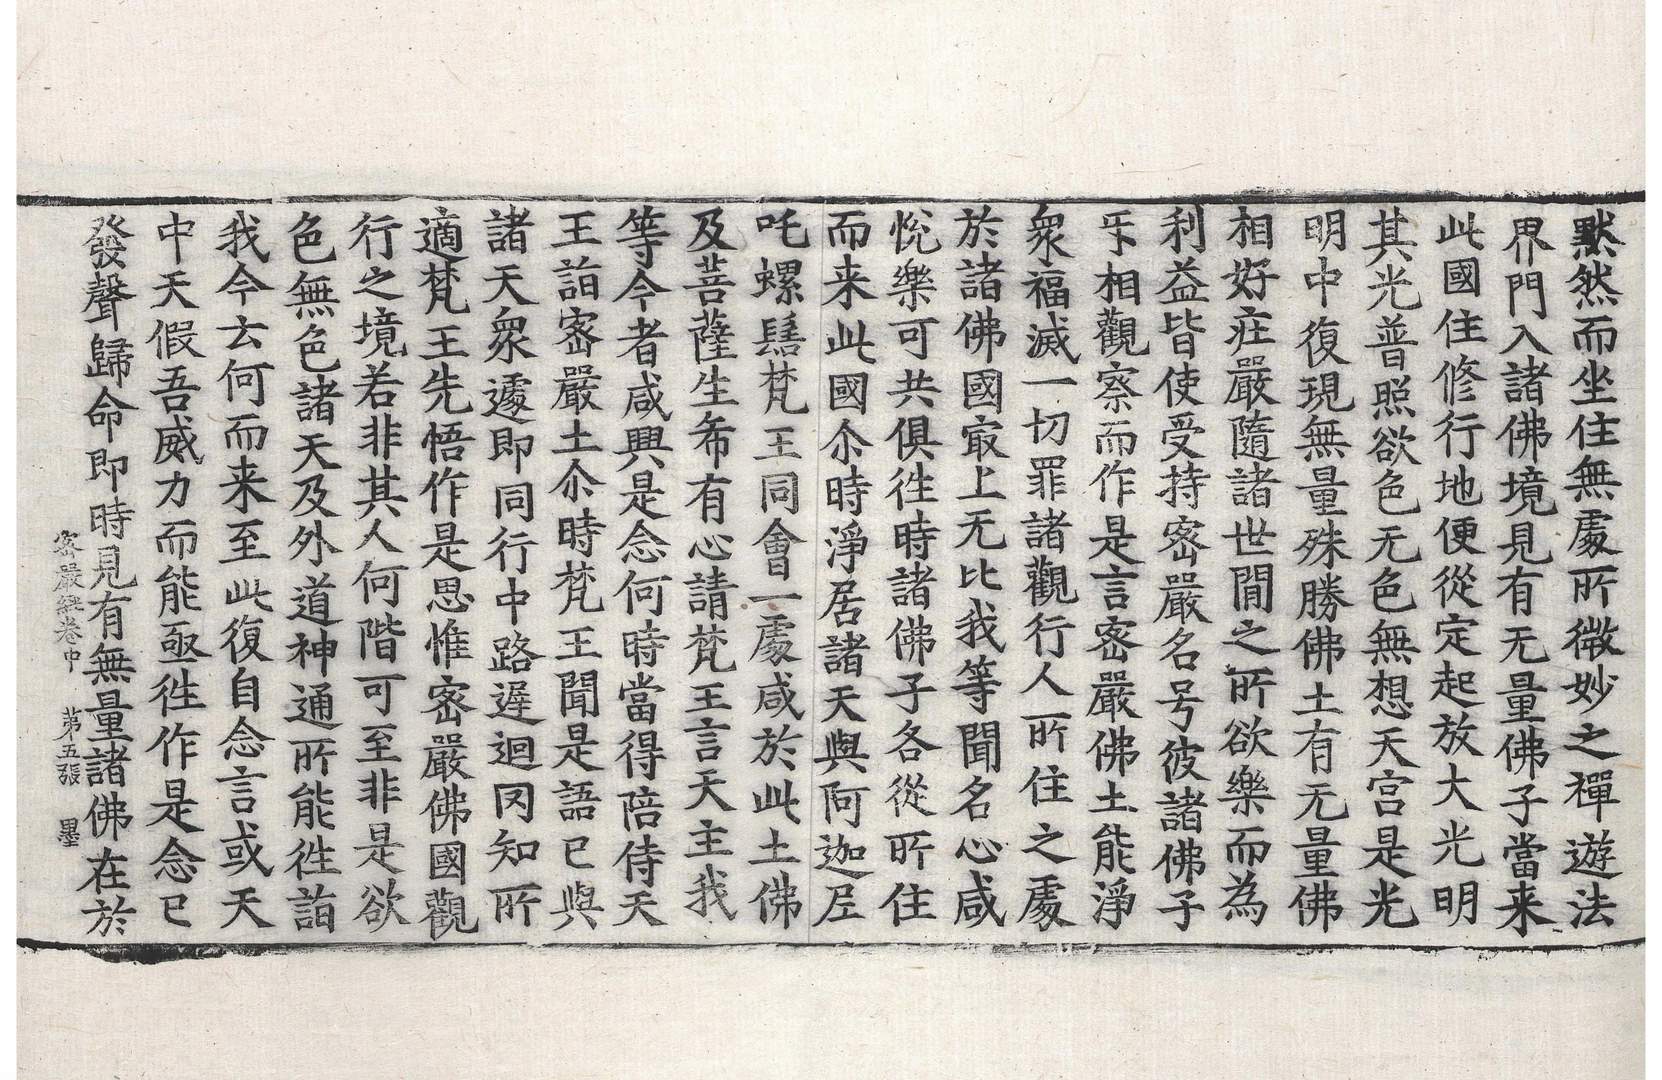 默然而坐住無處所微妙之禪遊法
界門入諸佛境見有无量佛子當来
此國住修行地便從定起放大光明
其光普照欲色无色無想天宫是光
明中復現無量殊勝佛土有无量佛
相好庄嚴隨諸世間之所欲樂而為
利益皆使受持宻嚴名号彼諸佛子
𠄔相觀察而作是言宻嚴佛土能淨
衆福滅一切罪諸觀行人所住之處
於諸佛國㝡上无比我等聞名心咸
悅樂可共俱徃時諸佛子各從所住
而来此國尒時淨居諸天與阿迦𡰱
吒螺髻梵王同會一處咸於此土佛
及菩薩生希有心請梵王言天主我
等今者咸興是念何時當得陪侍天
王詣宻嚴土尒時梵王聞是語已與
諸天衆遽即同行中路遲迴罔知所
適梵王先悟作是思惟宻嚴佛國觀
行之境若非其人何階可至非是欲
色無色諸天及外道神通所能徃詣
我今云何而来至此復自念言或天
中天假吾威力而能亟徃作是念已
發聲歸命即時見有無量諸佛在於
宻嚴經卷中 第五張 墨